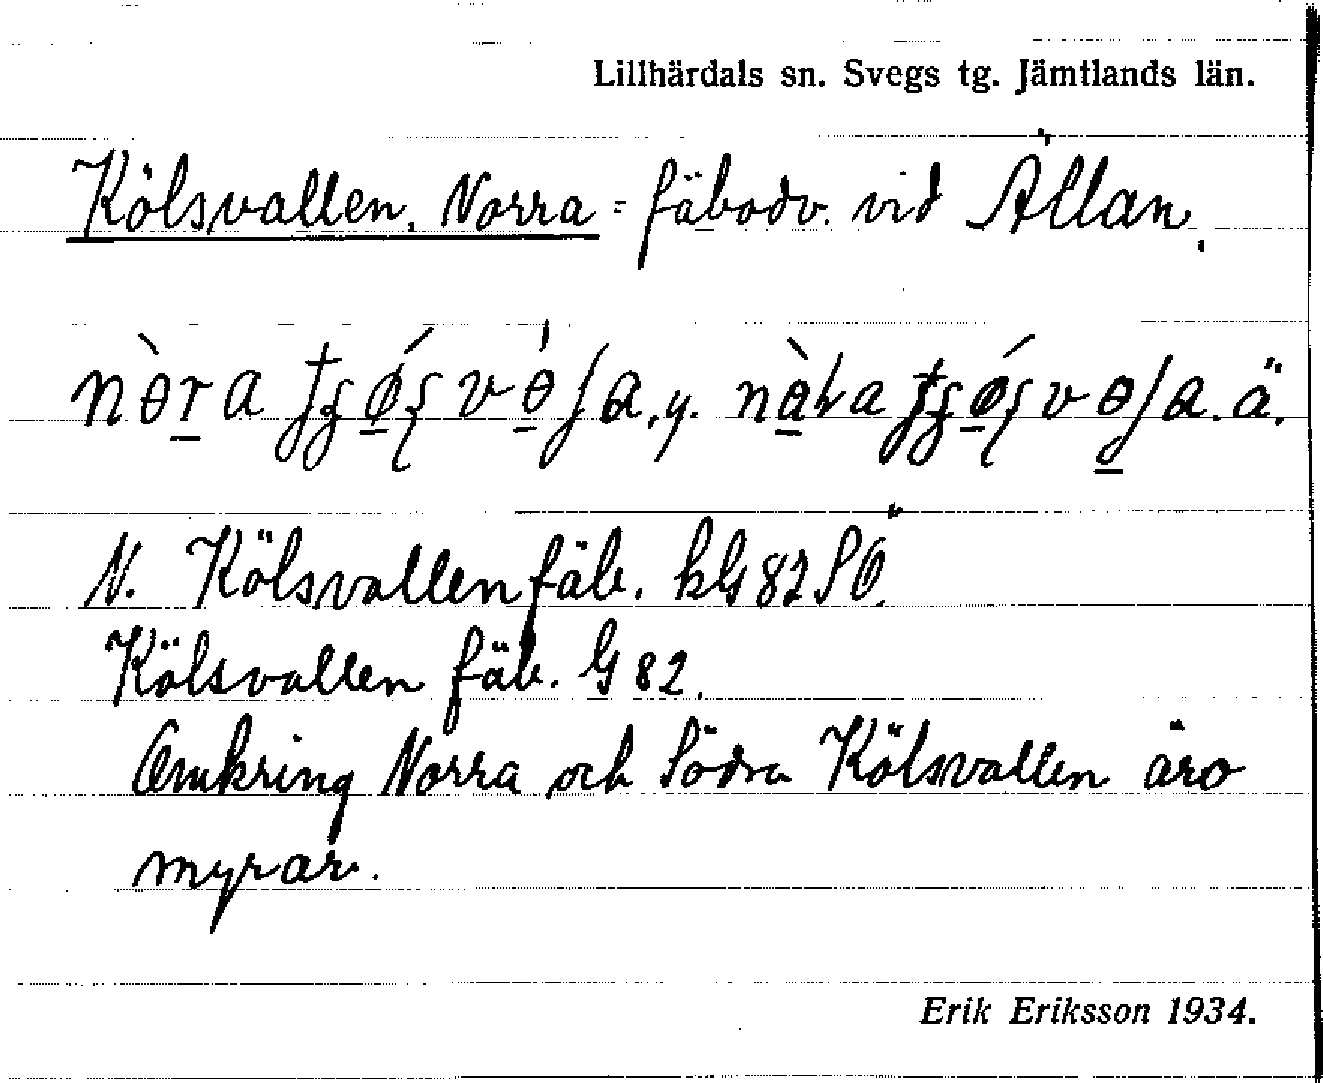 Lillhärdals sn. Svegs tg. Jämtlands län.
Kölsvallen, Norra = fäbodv. vid Ällan.
N. Kölsvallen fäb. kG 82 SÖ.
Kölsvallen fäb. G 82.
Omkring Norra och Södra Kölsvallen äro
myrar.
Erik Eriksson 1934.